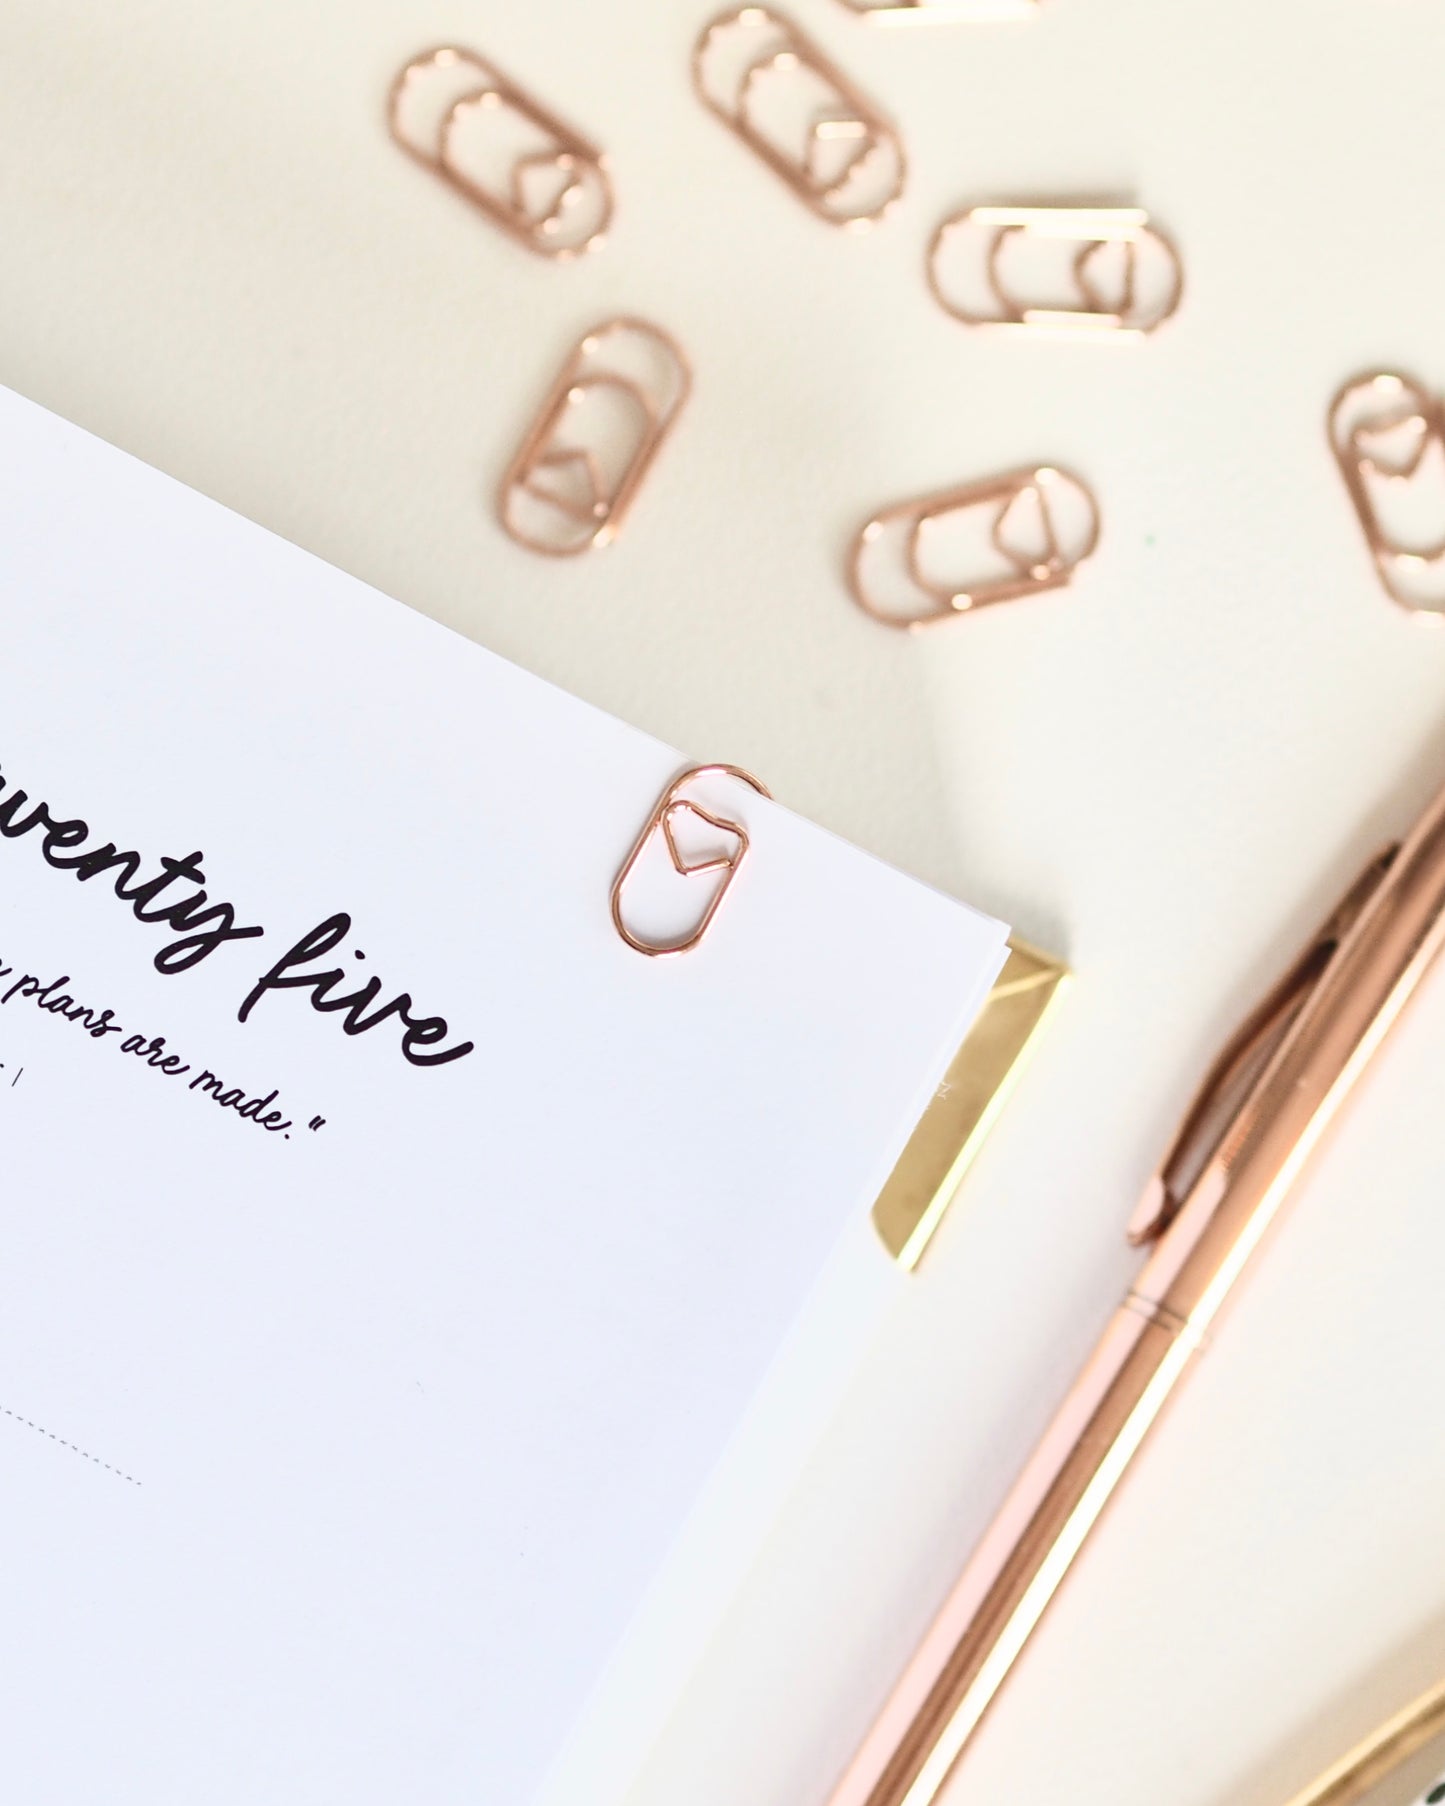 wenty five
plans are made."